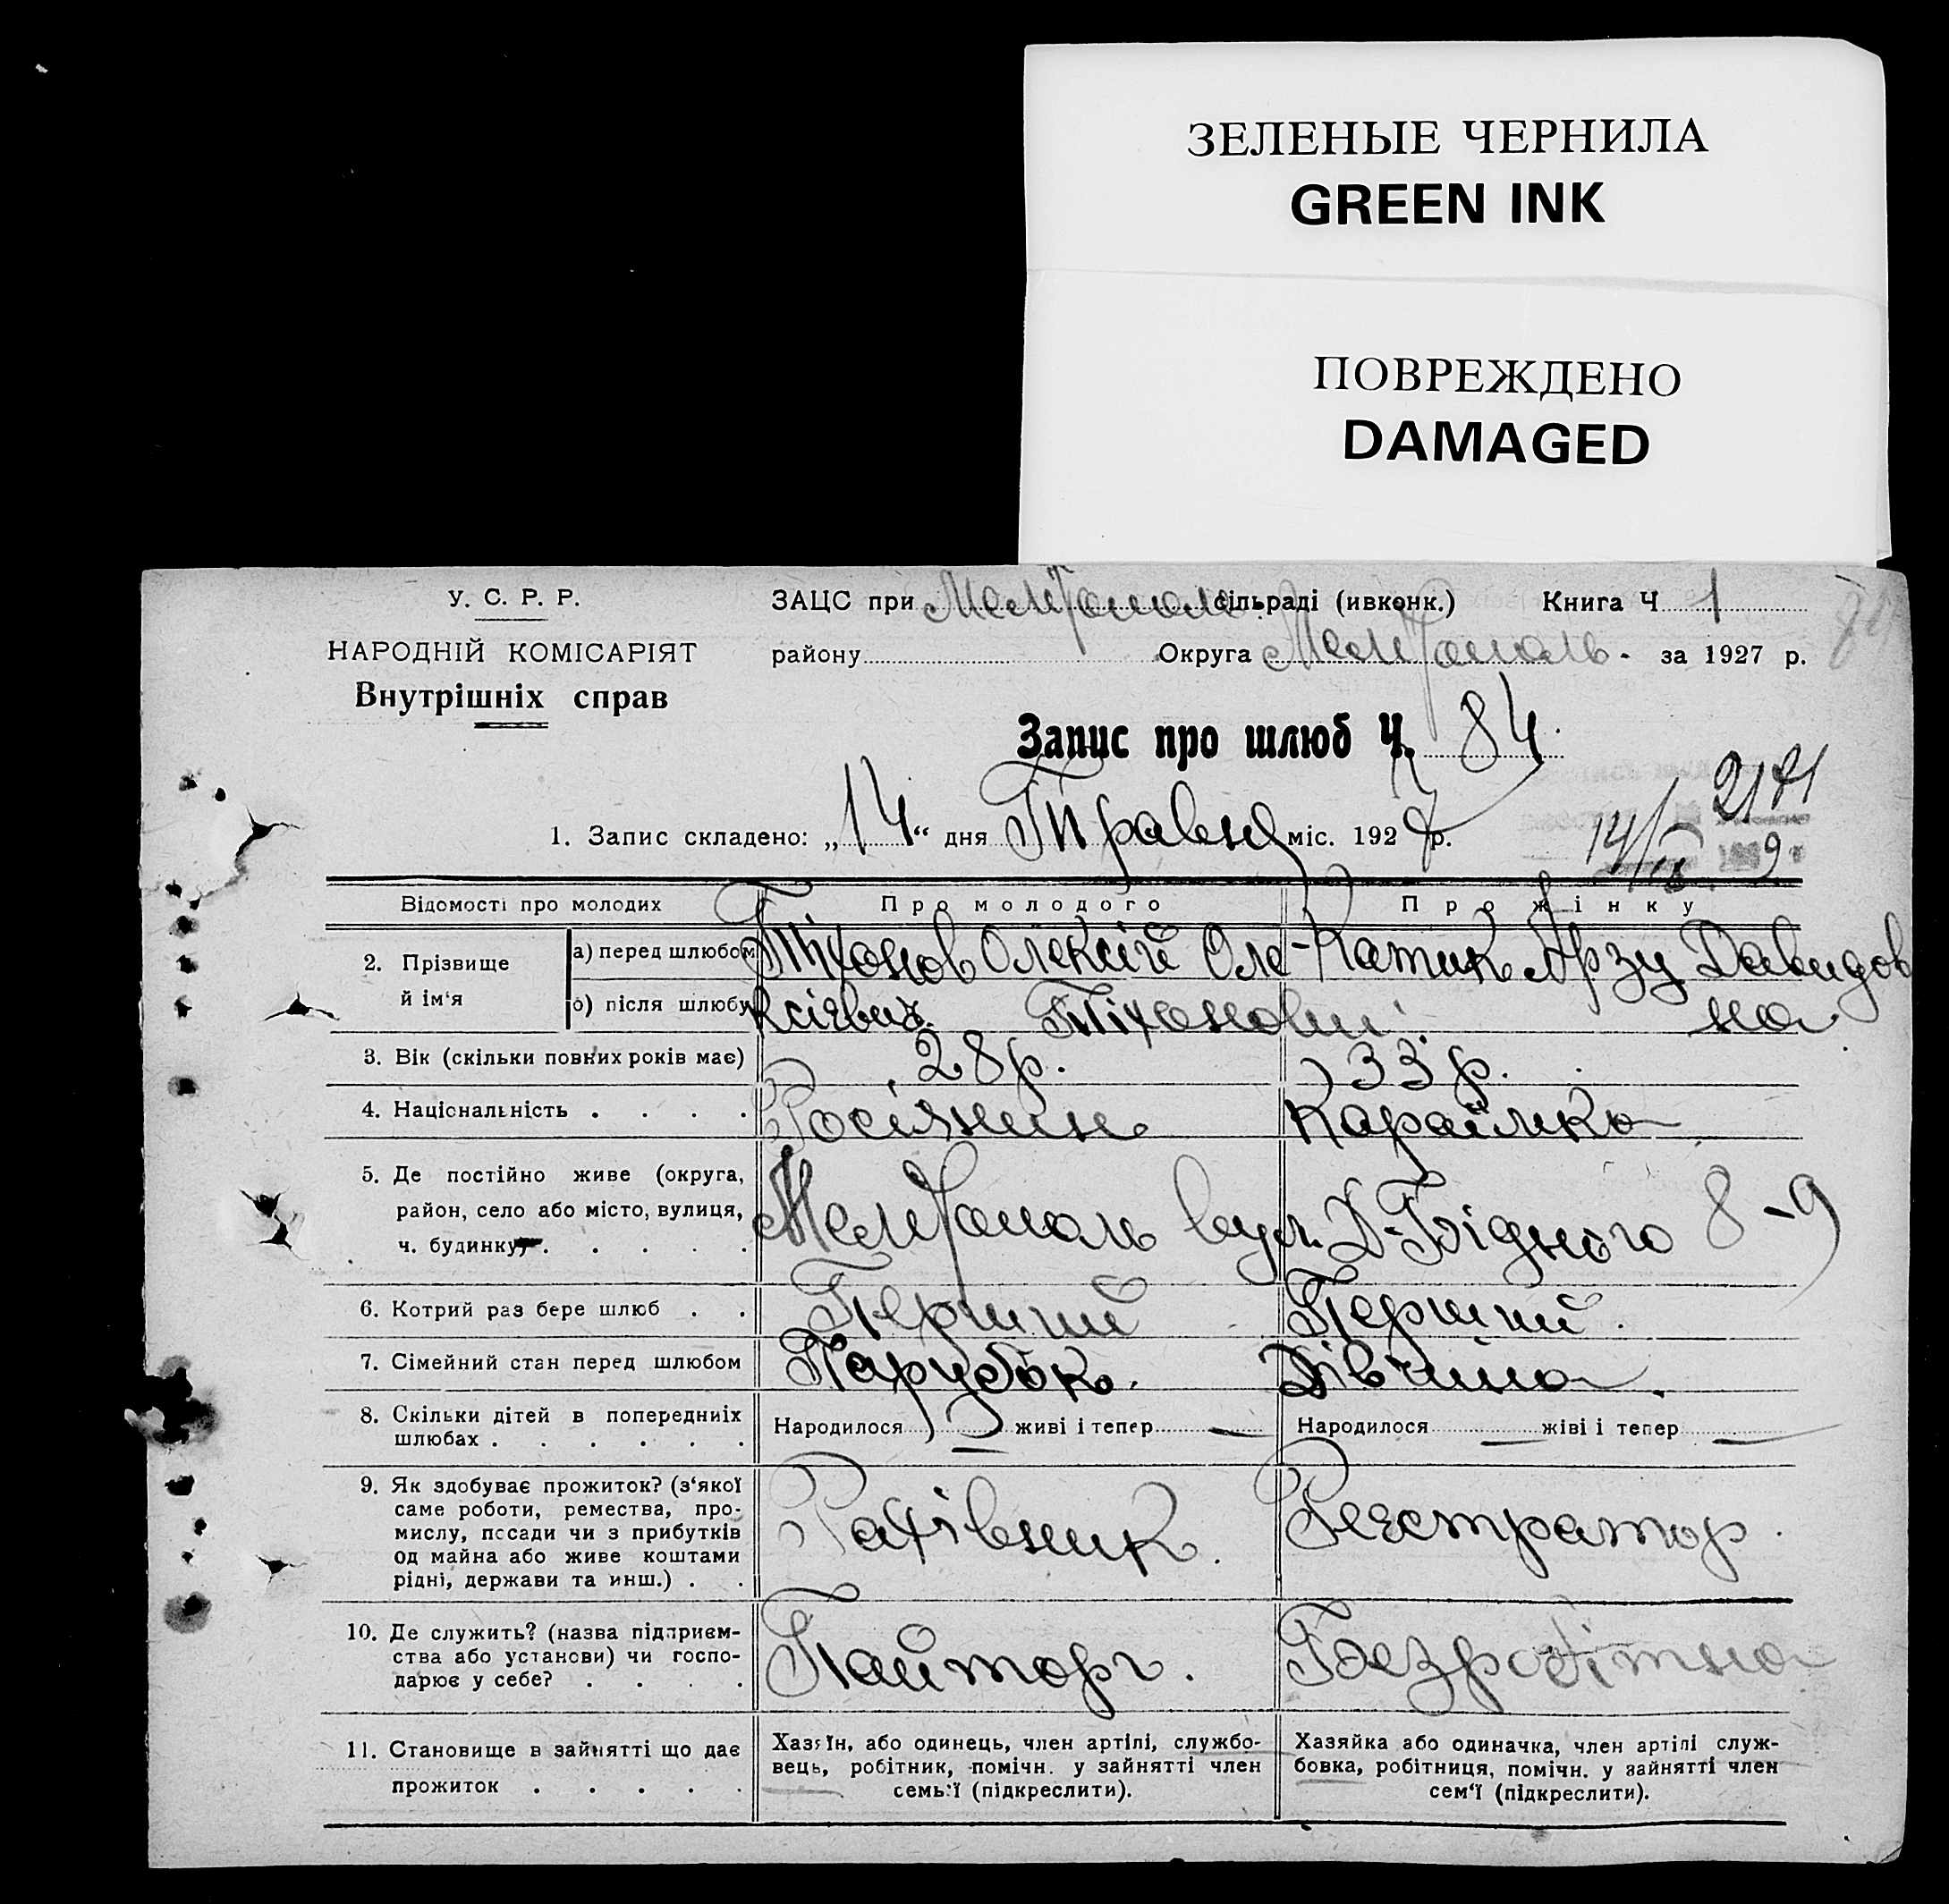 ЗЕЛЕНЫЕ ЧЕРНИЛА
GREEN INK
ПОВРЕЖДЕНО
DAMAGED
У. С. Р. Р.
НАРОДНІЙ КОМІСАРІЯТ
Внутрішніх справ
ЗАЦС при Мелітополь. сільраді (ивконк.) Книга Ч 1
району Округа Мелітополь. за 1927 р.
Запис про шлюб Ч. 84
1. Запис складено: „14“ дня Травня міс. 1927 р.
Відомості про молодих Про молодого Про жінку
2. Прізвище й ім‘я
а) перед шлюбом Тіхонов Олексій Оле- Катик Арзу Давидов
б) після шлюбу ксієвич. Тіхонови. на
3. Вік (скільки повних років має) 28 р. 33 р.
4. Національність . . . . Росіянин Караїмка
5. Де постійно живе (округа,
район, село або місто, вулиця,
ч. будинку) . . . . .
Мелітополь вул. Д-Бідного 8-9
6. Котрий раз бере шлюб . . Перший Перший.
7. Сімейний стан перед шлюбом Парубок. Дівчина.
8. Скільки дітей в попередниіх
шлюбах . . . . . .
Народилося — живі і тепер — Народилося — жіві і тепер —
9. Як здобуває прожиток? (з‘якої
саме роботи, ремества, про-
мислу, посади чи з прибутків
од майна або живе коштами
рідні, держави та инш.) . .
Рахівник. Реєстратор.
10. Де служить? (назва підприєм-
ства або установи) чи госпо-
дарює у себе? . . . .
Пайторг. Безробітна
11. Становище в зайнятті що дає
прожиток . . . . .
Хазяїн, або одинець, член артілі, службо-
вець, робітник, помічн. у зайнятті член
семь‘ї (підкреслити).
Хазяйка або одиначка, член артілі служ-
бовка, робітниця, помічн. у зайнятті член
сем‘ї (підкреслити).